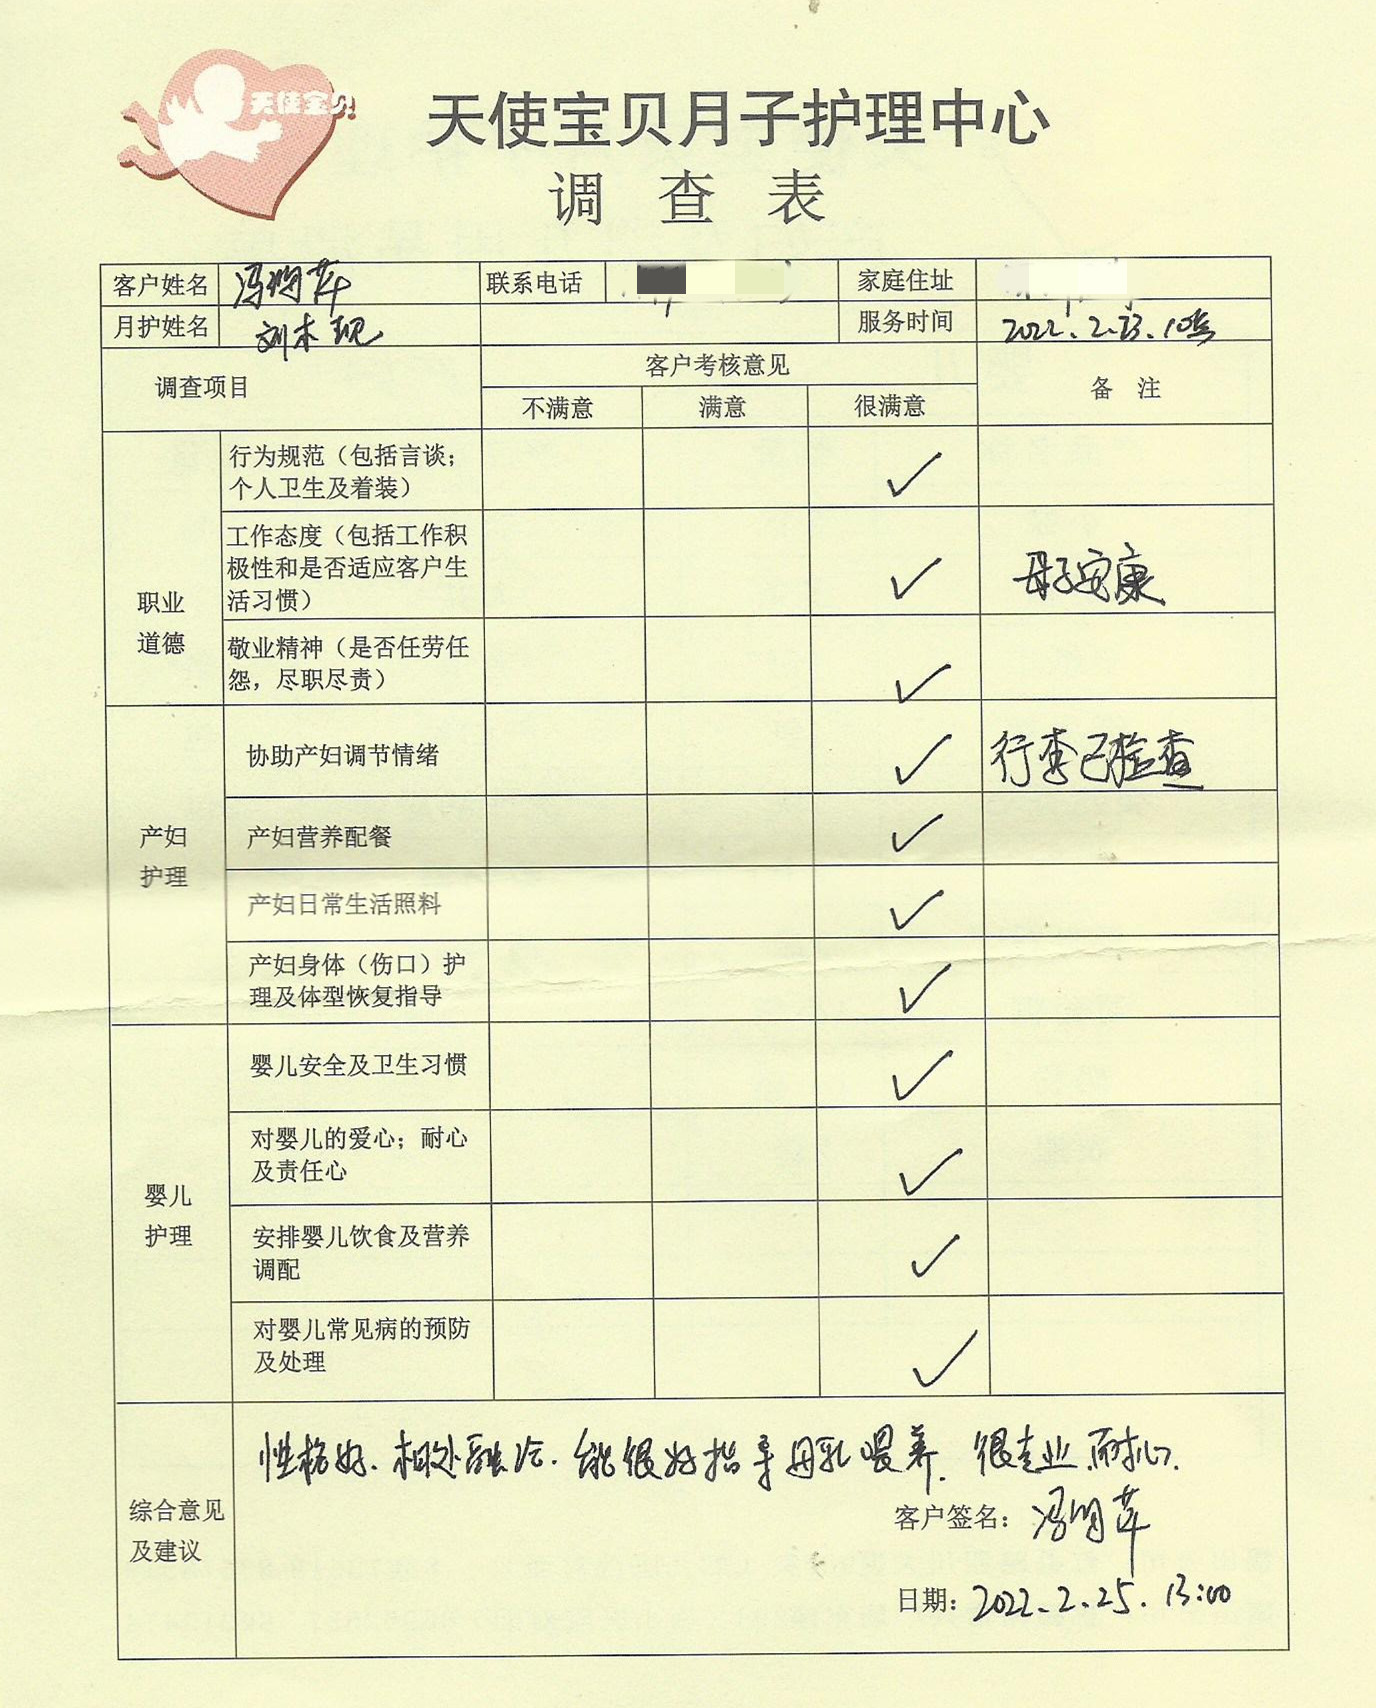 天使宝贝
天使宝贝月子护理中心
调查表
客户姓名 冯 联系电话 家庭住址
月护姓名 刘木现 服务时间 2022.2.23.10点
调查项目 客户考核意见 备注
不满意 满意 很满意
职业
道德
行为规范（包括言谈；
个人卫生及着装） ✓
工作态度（包括工作积
极性和是否适应客户生
活习惯） ✓ 母子安康
敬业精神（是否任劳任
怨，尽职尽责） ✓
产妇
护理
协助产妇调节情绪 ✓ 行李已检查
产妇营养配餐 ✓
产妇日常生活照料 ✓
产妇身体（伤口）护
理及体型恢复指导 ✓
婴儿
护理
婴儿安全及卫生习惯 ✓
对婴儿的爱心；耐心
及责任心 ✓
安排婴儿饮食及营养
调配 ✓
对婴儿常见病的预防
及处理 ✓
综合意见
及建议
性格好、相处融洽、能很好指导母乳喂养、很专业、耐心.
客户签名：冯
日期：2022.2.25. 13:00